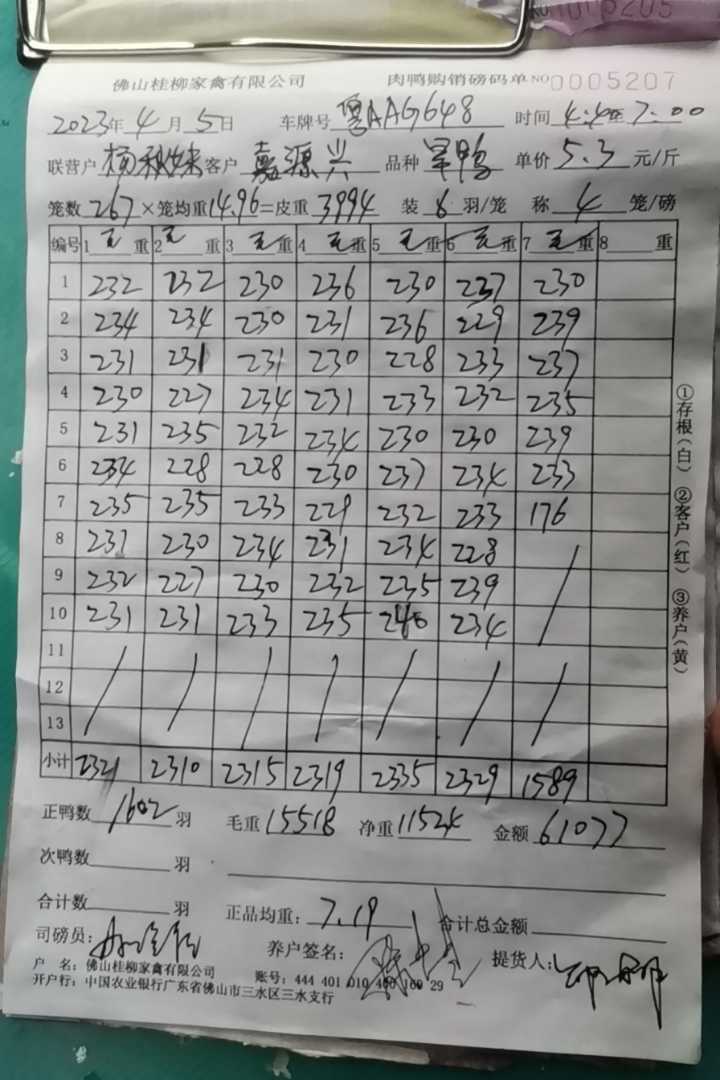 佛山桂柳家禽有限公司 肉鸭购销磅码单 NO 0005207
2023年 4 月 5 日 车牌号 粤AAG648 时间 7:00
联营户 杨秋妹 客户 嘉源兴 品种 旱鸭 单价 5.3 元/斤
笼数 267 ×笼均重 14.96 =皮重 3994 装 6 羽/笼 称 4 笼/磅
编号 1 毛 重 2 毛 重 3 毛 重 4 毛 重 5 毛 重 6 毛 重 7 毛 重 8 重
1 232 232 230 236 230 237 230
2 234 234 230 231 236 229 239
3 231 231 231 230 228 233 237
4 230 227 234 231 233 232 235
5 231 235 232 234 230 230 239
6 234 228 228 230 237 234 233
7 235 235 233 229 232 233 176
8 231 230 234 231 234 228 /
9 232 227 230 232 235 239
10 231 231 233 235 240 234
11
12 / / / / / / /
13
小计 2321 2310 2315 2319 2335 2329 1589
正鸭数 1602 羽 毛重 15518 净重 11524 金额 61077
次鸭数 羽
合计数 羽 正品均重: 7.19 合计总金额
司磅员: 养户签名: 提货人:
户 名: 佛山桂柳家禽有限公司 账号: 444 401 010 400 160 29
开户行: 中国农业银行广东省佛山市三水区三水支行
①存根(白) ②客户(红) ③养户(黄)